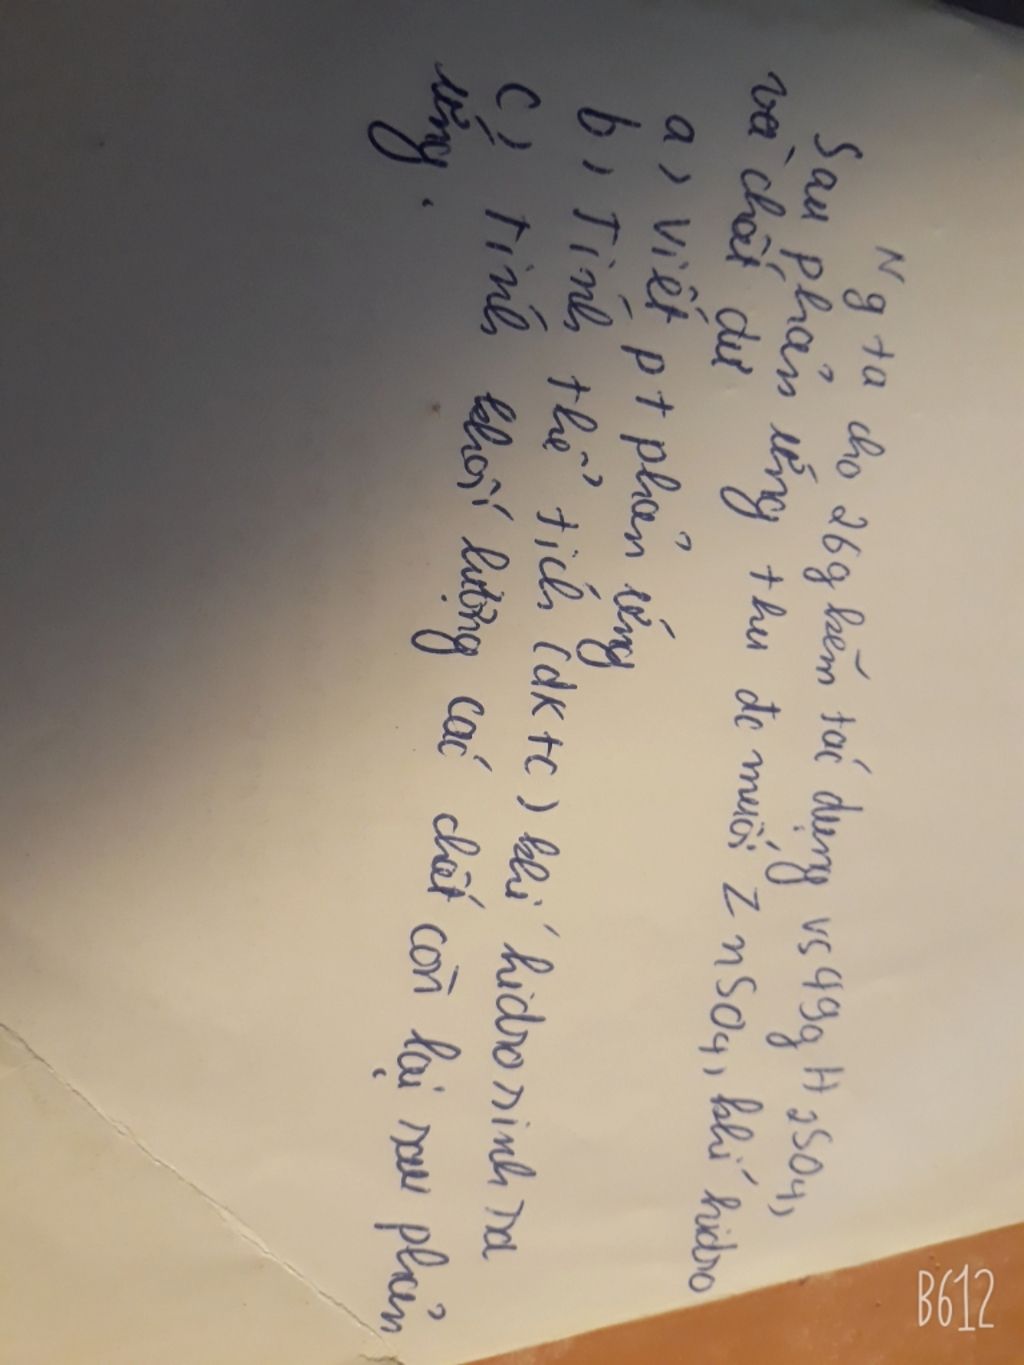 Ng ta cho 26g kẽm tác dụng vs 49g H2SO4,
Sau phản ứng thu đc muối ZnSO4, khí hidro
và chất dư
a, viết pt phản ứng
b, Tính thể tích (đktc) khí hidro sinh ra
c, tính khối lượng các chất còn lại sau phản
ứng.
B612